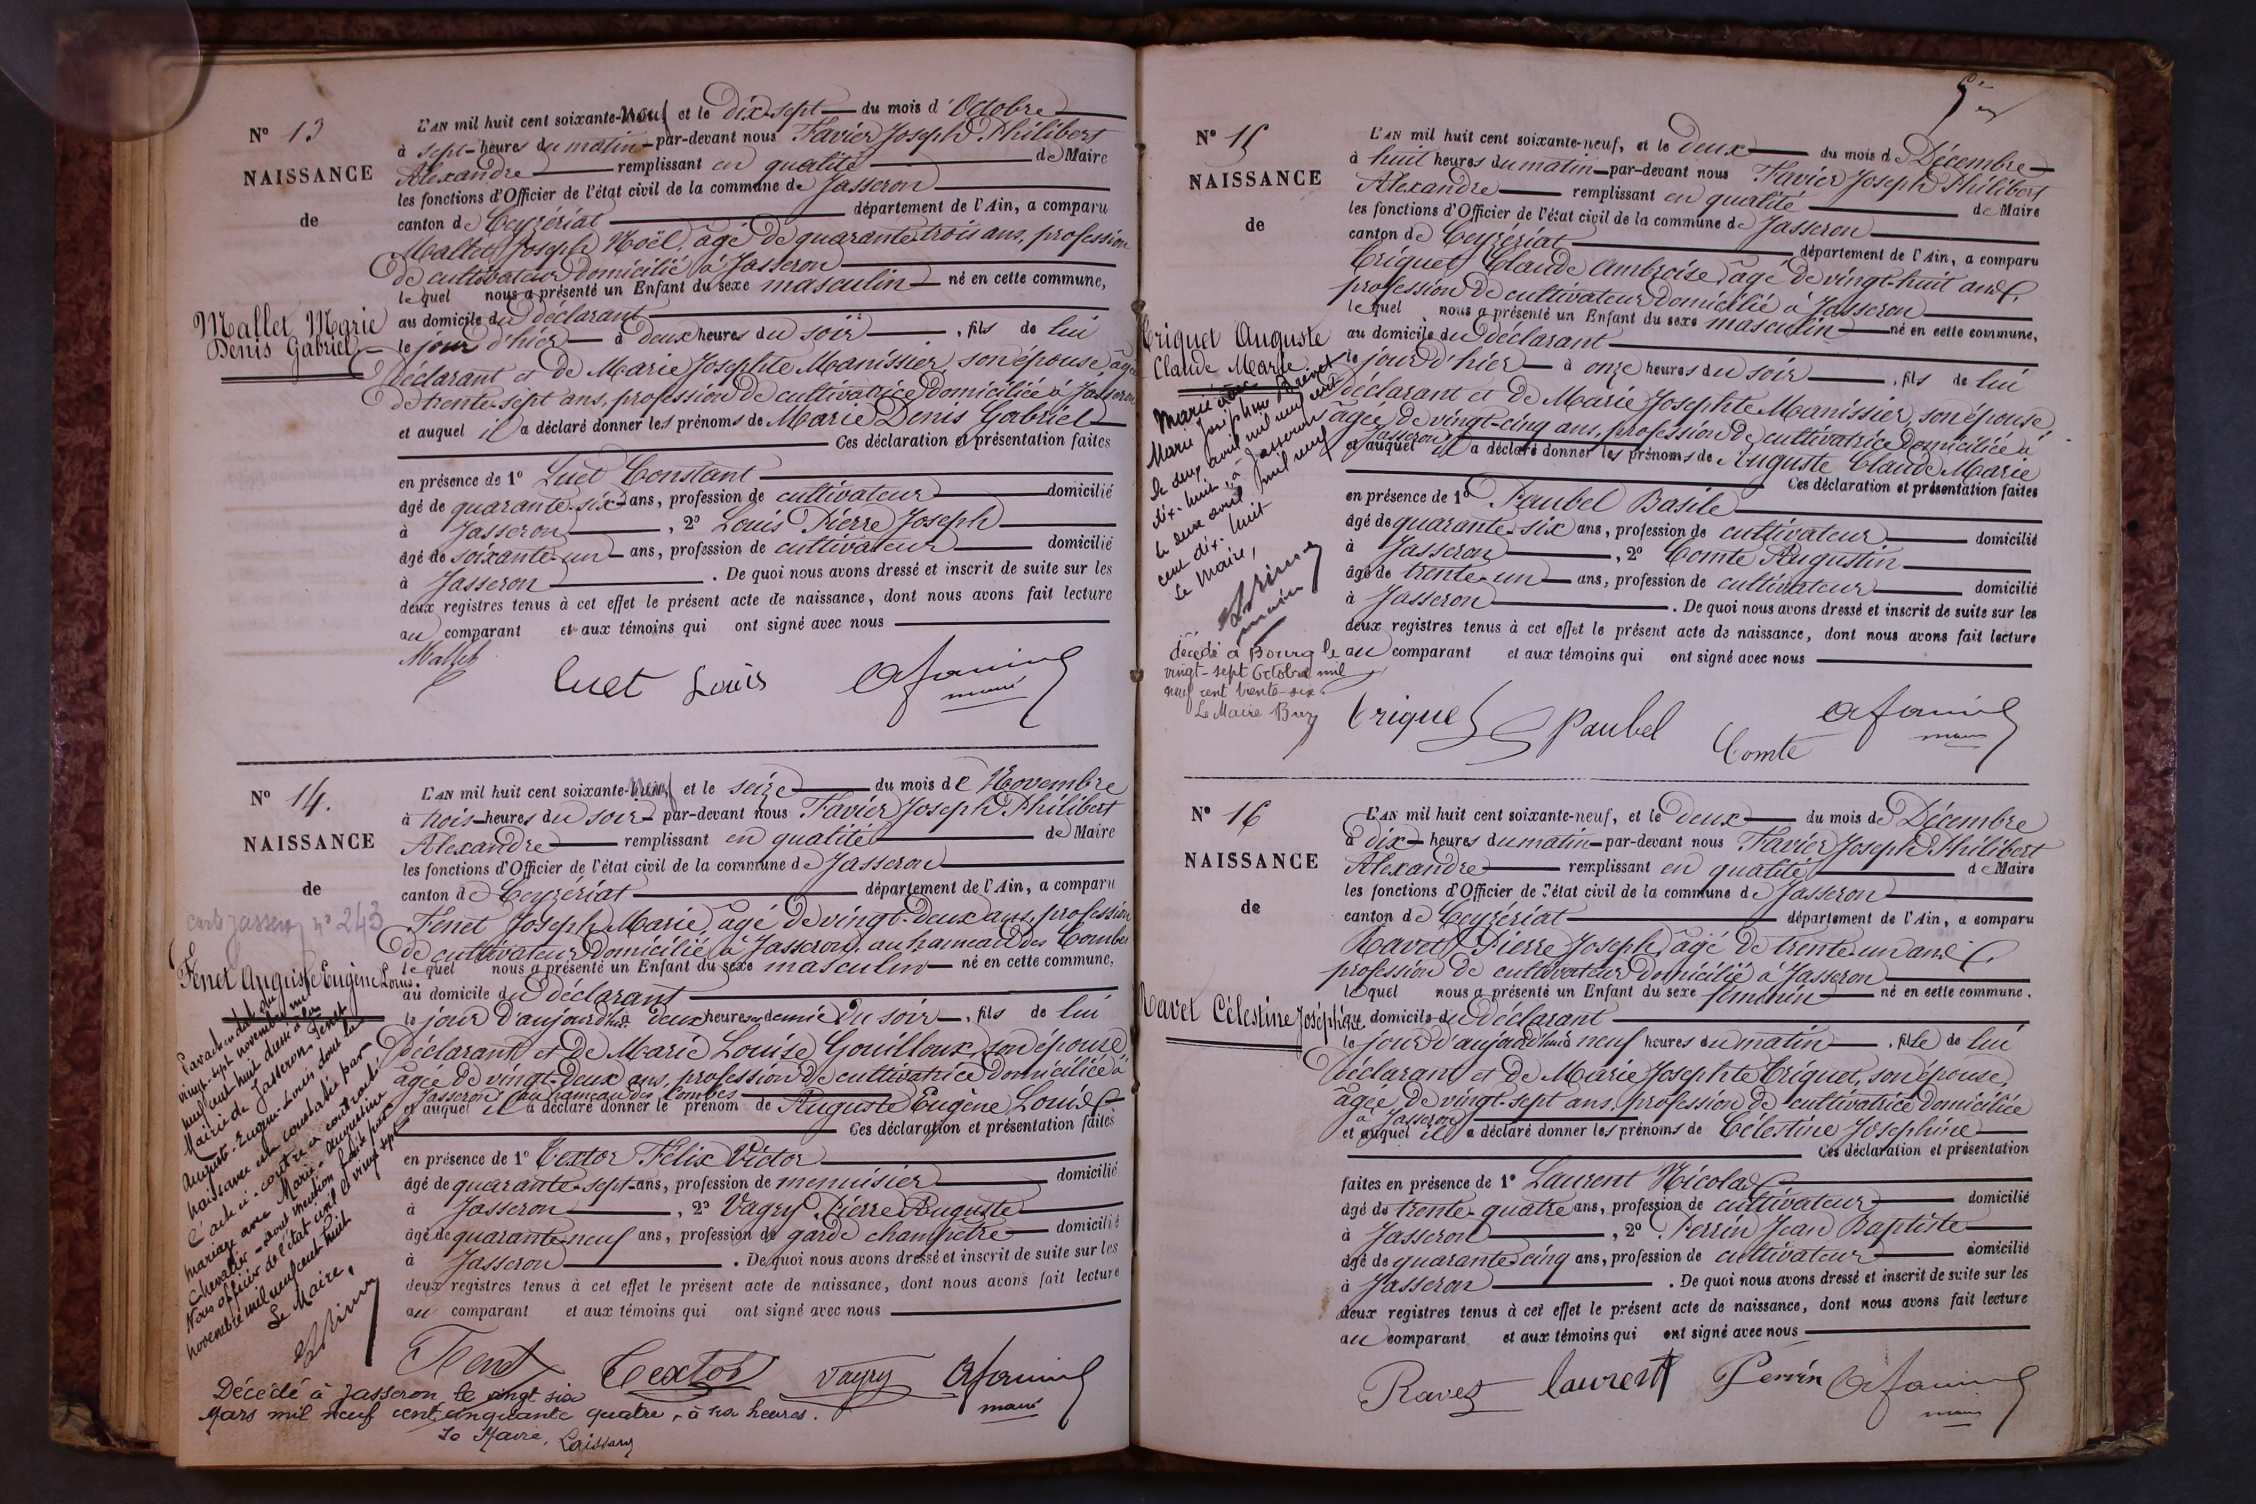 N° 13
NAISSANCE
de
Mallet Marie
Denis Gabriel
L'AN mil huit cent soixante-neuf et le Dix-sept du mois d'Octobre
à sept heures du matin par-devant nous Favier Joseph Philibert
Alexandre remplissant en qualité de Maire
les fonctions d'Officier de l'état civil de la commune de Jasseron
canton de Ceyzériat département de l'Ain, a comparu
Mallet Joseph Noël, âgé de quarante-trois ans, profession
de cultivateur domicilié à Jasseron
le quel nous a présenté un Enfant du sexe masculin né en cette commune,
au domicile du déclarant
le jour d'hier à deux heures du soir, fils de lui
déclarant et de Marie Josephte Manissier, son épouse, âgée
de trente-sept ans, profession de cultivatrice domiciliée à Jasseron
et auquel il a déclaré donner les prénoms de Marie Denis Gabriel
Ces déclaration et présentation faites
en présence de 1° Luet Constant
âgé de quarante-six ans, profession de cultivateur domicilié
à Jasseron, 2° Louis Pierre Joseph
âgé de soixante-un ans, profession de cultivateur domicilié
à Jasseron. De quoi nous avons dressé et inscrit de suite sur les
deux registres tenus à cet effet le présent acte de naissance, dont nous avons fait lecture
au comparant et aux témoins qui ont signé avec nous
Mallet
Luet Louis
maire
N° 14.
NAISSANCE
de
carte Jasseron n° 243
Fenet Auguste Eugène Louis.
L'AN mil huit cent soixante-neuf et le seize du mois de Novembre
à trois heures du soir par-devant nous Favier Joseph Philibert
Alexandre remplissant en qualité de Maire
les fonctions d'Officier de l'état civil de la commune de Jasseron
canton de Ceyzériat département de l'Ain, a comparu
Fenet Joseph Marie, âgé de vingt-deux ans, profession
de cultivateur domicilié à Jasseron, au hameau des Combes
le quel nous a présenté un Enfant du sexe masculin né en cette commune,
au domicile du déclarant
le jour d'aujourd'hui à deux heures et demie du soir, fils de lui
déclarant et de Marie Louise Gouilloux, son épouse
âgée de vingt-deux ans, profession de cultivatrice domiciliée à
Jasseron au hameau des Combes
et auquel il a déclaré donner le prénom de Auguste Eugène Louis
Ces déclaration et présentation faites
en présence de 1° Textor Félix Victor
âgé de quarante-sept ans, profession de menuisier domicilié
à Jasseron, 2° Vagry Pierre Auguste
âgé de quarante-neuf ans, profession de garde champêtre domicilié
à Jasseron. De quoi nous avons dressé et inscrit de suite sur les
deux registres tenus à cet effet le présent acte de naissance, dont nous avons fait lecture
au comparant et aux témoins qui ont signé avec nous
Par acte en date du
vingt-sept novembre mil
neuf cent huit dressé à la
Mairie de Jasseron, Fenet
Auguste-Eugène-Louis, dont la
naissance est constatée par
l'acte ci-contre a contracté
mariage avec Marie-Augustine
Chevalier - dont mention faite par
Nous officier de l'état civil le vingt sept
novembre mil neuf cent huit
Le Maire,
Fenet Textor Vagry
maire
Décédé à Jasseron le vingt six
Mars mil neuf cent cinquante quatre, à six heures.
Le Maire,
N° 15
NAISSANCE
de
Criquet Auguste
Claude Marie
L'AN mil huit cent soixante-neuf, et le deux du mois de Décembre
à huit heures du matin par-devant nous Favier Joseph Philibert
Alexandre remplissant en qualité de Maire
les fonctions d'Officier de l'état civil de la commune de Jasseron
canton de Ceyzériat département de l'Ain, a comparu
Criquet Claude Ambroise, âgé de vingt-huit ans,
profession de cultivateur domicilié à Jasseron
le quel nous a présenté un Enfant du sexe masculin né en cette commune,
au domicile du déclarant
le jour d'hier à onze heures du soir, fils de lui
déclarant et de Marie Josephte Manissier, son épouse
âgée de vingt-cinq ans, profession de cultivatrice domiciliée à
Jasseron
et auquel il a déclaré donner les prénoms de Auguste Claude Marie
Ces déclaration et présentation faites
en présence de 1° Paubel Basile
âgé de quarante-six ans, profession de cultivateur domicilié
à Jasseron, 2° Comte Augustin
âgé de trente-un ans, profession de cultivateur domicilié
à Jasseron. De quoi nous avons dressé et inscrit de suite sur les
deux registres tenus à cet effet le présent acte de naissance, dont nous avons fait lecture
au comparant et aux témoins qui ont signé avec nous
Marié avec
Marie Joséphine
le deux avril mil neuf cent
dix-huit, à Jasseron
le deux avril mil neuf
cent dix-huit
Le Maire,
décédé à Bourg le
vingt-sept Octobre mil
neuf cent trente-six
Le Maire
Criquet Paubel
Comte
maire
N° 16
NAISSANCE
de
Ravet Célestine Joséphine
L'AN mil huit cent soixante-neuf, et le deux du mois de Décembre
à dix heures du matin par-devant nous Favier Joseph Philibert
Alexandre remplissant en qualité de Maire
les fonctions d'Officier de l'état civil de la commune de Jasseron
canton de Ceyzériat département de l'Ain, a comparu
Ravet Pierre Joseph, âgé de trente-un ans,
profession de cultivateur domicilié à Jasseron
le quel nous a présenté un Enfant du sexe féminin né en cette commune.
au domicile du déclarant
le jour d'aujourd'hui à neuf heures du matin, fille de lui
déclarant et de Marie Josephte Criquet, son épouse,
âgée de vingt-sept ans, profession de cultivatrice domiciliée
à Jasseron
et auquel il a déclaré donner les prénoms de Célestine Joséphine
Ces déclaration et présentation
faites en présence de 1° Laurent Nicolas
âgé de trente-quatre ans, profession de cultivateur domicilié
à Jasseron, 2° Perrin Jean Baptiste
âgé de quarante-cinq ans, profession de cultivateur domicilié
à Jasseron. De quoi nous avons dressé et inscrit de suite sur les
deux registres tenus à cet effet le présent acte de naissance, dont nous avons fait lecture
au comparant et aux témoins qui ont signé avec nous
Ravet Laurent Perrin
maire